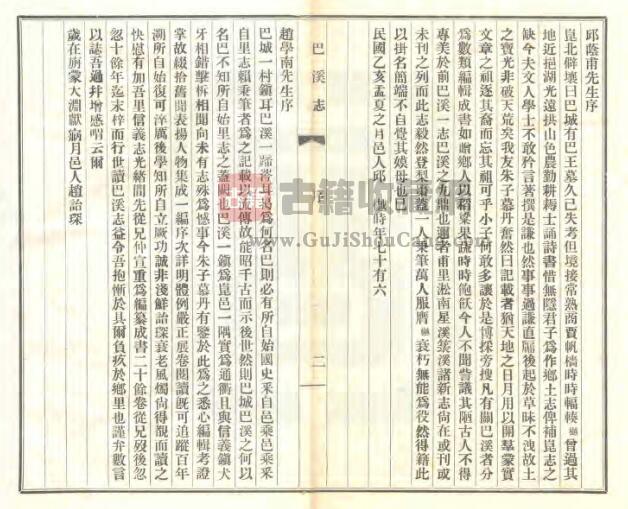 邱蔭甫先生序
崑北僻壤曰巴城有巴王墓久已失考但境接常熟商賈帆檣時時輻輳 曾過其
地近挹湖光遠拱山色農勤耕耨士誦詩書惜無隱君子為作鄉土志俾補崑志之
缺今夫文人學士不敢矜言著撰是謙也然事事過謙直屬後起於草昧不洩故土
之寶光非破天荒矣我友朱子墓丹奮然曰記載者猶天地之日月用以開羣蒙實
文章之祖逐其裔而忘其祖可乎小子何敢多讓於是博採旁搜凡有關巴溪者分
為數類編輯成書如噲鄉人以稻粱果蔬時時飽飫今人不聞訾議其陋古人不得
專美於前巴溪一志巴溪之九鼎也邇者里志淞南星溪菉溪諸新志尚在或刊或
未刊之列而此志毅然登梨棗蓋一人秉筆萬人服膺 衰朽無能為役然得籍此
以掛名簡端不自覺其媿毋也已
民國乙亥孟夏之月邑人邱 時年七十有六
巴溪志
序
二
趙學南先生序
巴城一村鎮耳巴溪一 為何名巴則必有所自始國史釆自邑乘邑乘釆
自里志賴秉筆者為之記載以 傳故能昭千古而示後世然則巴城巴溪之何以
名巴不知所自始里志之蓋闕也巴溪一鎮為崑邑一隅實為通衢且與信義鎮犬
牙相錯擊柝相聞向未有志殊為憾事今朱子墓丹有鑒於此為之悉心編輯考證
掌故綴拾舊聞表揚人物集成一編序次詳明體例嚴正展卷閱讀既可追蹤百年
溯所自始復可淬厲後學知所自立厥功誠非淺鮮詒琛衰老風燭尚得覩而讀之
快慰有加吾里信義志光緒間先從兄仲宣重為編纂成書二十餘卷從兄歿後忽
忽十餘年迄未梓而行世讀巴溪志益令吾抱慚於具爾負疚於鄉里也謹弁數言
以誌吾過并增感喟云爾
歲在旃蒙大淵獻窉月邑人趙詒琛
古籍收藏
www.GuJiShouCang.com